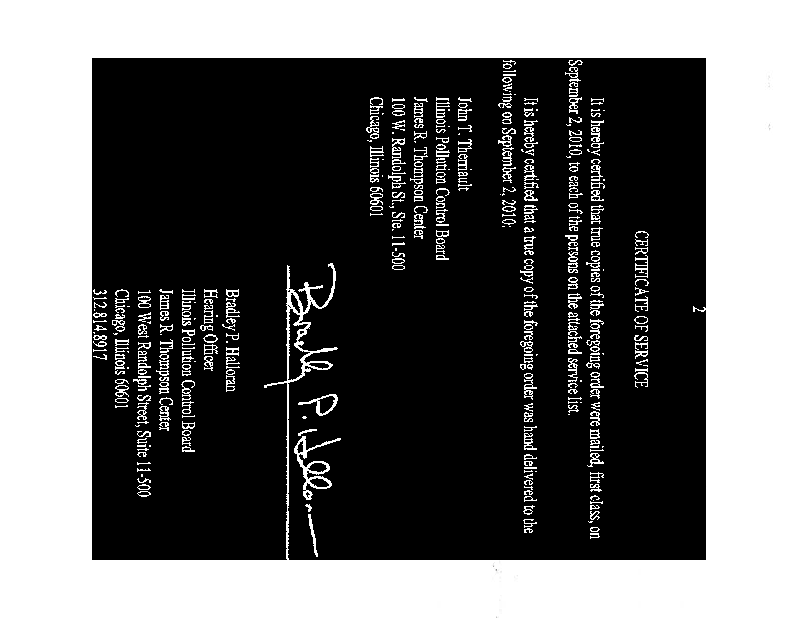 2
CERTIFICATE OF SERVICE
It is hereby certified that true copies of the foregoing order were mailed, first class, on
September 2, 2010, to each of the persons on the attached service list.
It is hereby certified that a true copy of the foregoing order was hand delivered to the
following on September 2, 2010:
John T. Therriault
Illinois Pollution Control Board
James R. Thompson Center
100 W. Randolph St., Ste. 11-500
Chicago, Illinois 60601
Bradley P. Halloran
Bradley P. Halloran
Hearing Officer
Illinois Pollution Control Board
James R. Thompson Center
100 West Randolph Street, Suite 11-500
Chicago, Illinois 60601
312.814.8917